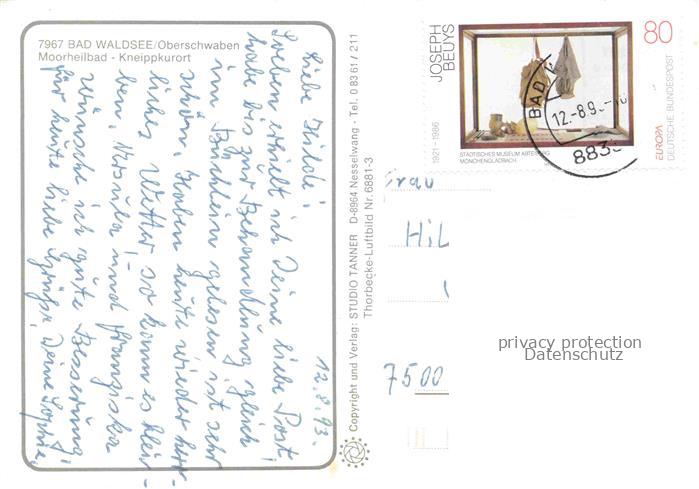 7967 BAD WALDSEE/Oberschwaben
Moorheilbad - Kneippkurort
12.8.93.
Liebe Hilde!
Soeben erhielt ich Deine liebe Post,
habe bis zur Behandlung gleich
im Büchlein gelesen ist sehr
schön. Haben heute wieder herr-
liches Wetter! so kann es blei-
ben. Ursula und Franziska
wünsche ich gute Besserung!
für heute liebe Grüße, Deine Sophie,
Copyright und Verlag: STUDIO TANNER D-8964 Nesselwang - Tel. 0 83 61 / 211
Thorbecke-Luftbild Nr. 6881-3
JOSEPH
BEUYS
1921 - 1986
80
STÄDTISCHES MUSEUM ABTEIBERG
MÖNCHENGLADBACH
EUROPA
DEUTSCHE BUNDESPOST
BAD
12.-8.9
883
Frau
Hil
7500
privacy protection
Datenschutz